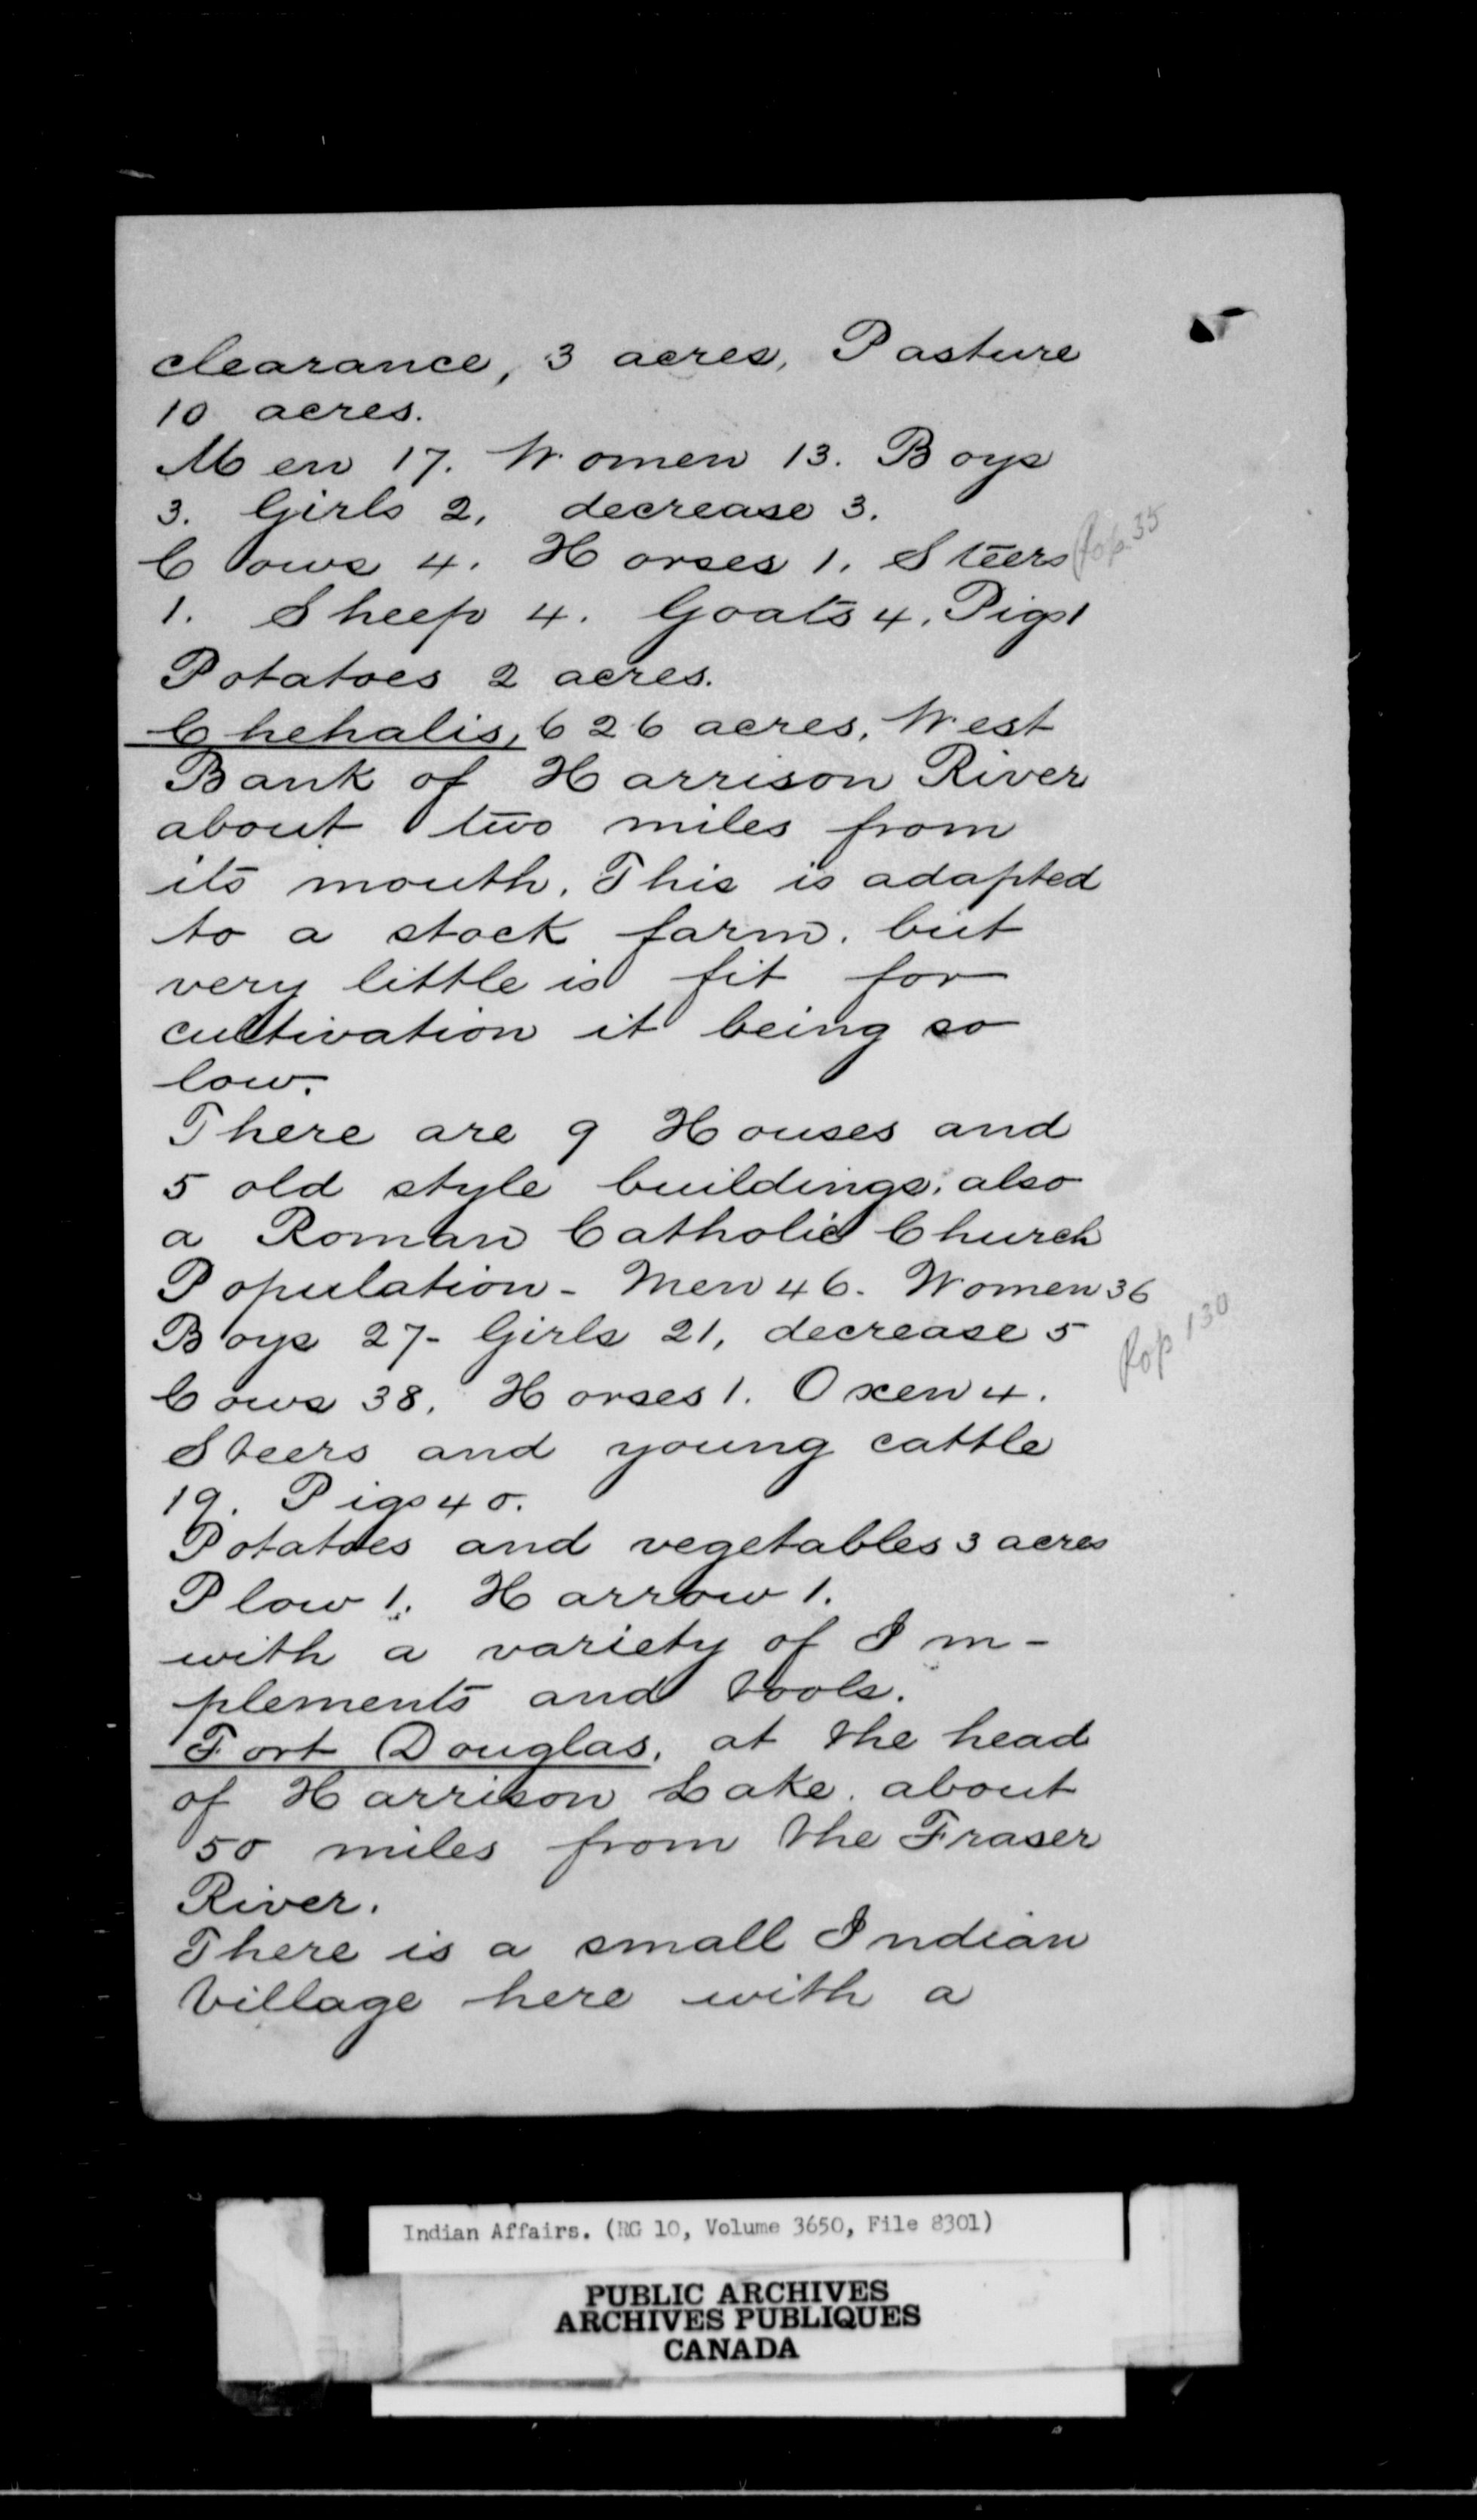 clearance, 3 acres, Pasture
10 acres.
Men 17. Women 13. Boys
3. Girls 2, decrease 3.
Pop. 35
Cows 4. Horses 1. Steers
1. Sheep 4. Goats 4. Pigs 1
Potatoes 2 acres.
Chehalis, 626 acres, West
Bank of Harrison River
about two miles from
its mouth. This is adapted
to a stock farm, but
very little is fit for
cultivation it being so
low.
There are 9 Houses and
5 old style buildings; also
a Roman Catholic Church
Population - Men 46. Women 36
Boys 27 - Girls 21, decrease 5
Pop 130
Cows 38, Horses 1. Oxen 4.
Steers and young cattle
19. Pigs 40.
Potatoes and vegetables 3 acres
Plow 1. Harrow 1.
with a variety of Im-
plements and tools.
Fort Douglas, at the head
of Harrison Lake. about
50 miles from the Fraser
River.
There is a small Indian
Village here with a
Indian Affairs. (RG 10, Volume 3650, File 8301)
PUBLIC ARCHIVES
ARCHIVES PUBLIQUES
CANADA